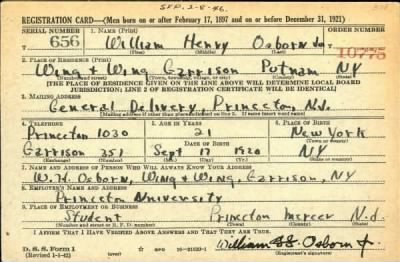 SFP. 2-8-46.
REGISTRATION CARD—(Men born on or after February 17, 1897 and on or before December 31, 1921)
SERIAL NUMBER 1. NAME (Print) ORDER NUMBER
656 William Henry Osborn Jr 10775
(First) (Middle) (Last)
2. PLACE OF RESIDENCE (Print)
Wing & Wing Garrison Putnam NY
(Number and street) (Town, township, village, or city) (County) (State)
[THE PLACE OF RESIDENCE GIVEN ON THE LINE ABOVE WILL DETERMINE LOCAL BOARD
JURISDICTION; LINE 2 OF REGISTRATION CERTIFICATE WILL BE IDENTICAL]
3. MAILING ADDRESS
General Delivery, Princeton, N.J.
[Mailing address if other than place indicated on line 2. If same insert word same]
4. TELEPHONE 5. AGE IN YEARS 6. PLACE OF BIRTH
Princeton 1030 21 New York
Garrison 351 DATE OF BIRTH
Sept 17 1920 NY
(Exchange) (Number) (Mo.) (Day) (Yr.) (State or country)
7. NAME AND ADDRESS OF PERSON WHO WILL ALWAYS KNOW YOUR ADDRESS
W. H. Osborn, Wing & Wing, Garrison, NY
8. EMPLOYER'S NAME AND ADDRESS
Princeton University
9. PLACE OF EMPLOYMENT OR BUSINESS
Student Princeton Mercer N.J.
(Number and street or R. F. D. number) (Town) (County) (State)
I AFFIRM THAT I HAVE VERIFIED ABOVE ANSWERS AND THAT THEY ARE TRUE.
D. S. S. Form 1
(Revised 1-1-42) GPO 16—21630-1 William H. Osborn Jr.
(Registrant's signature)